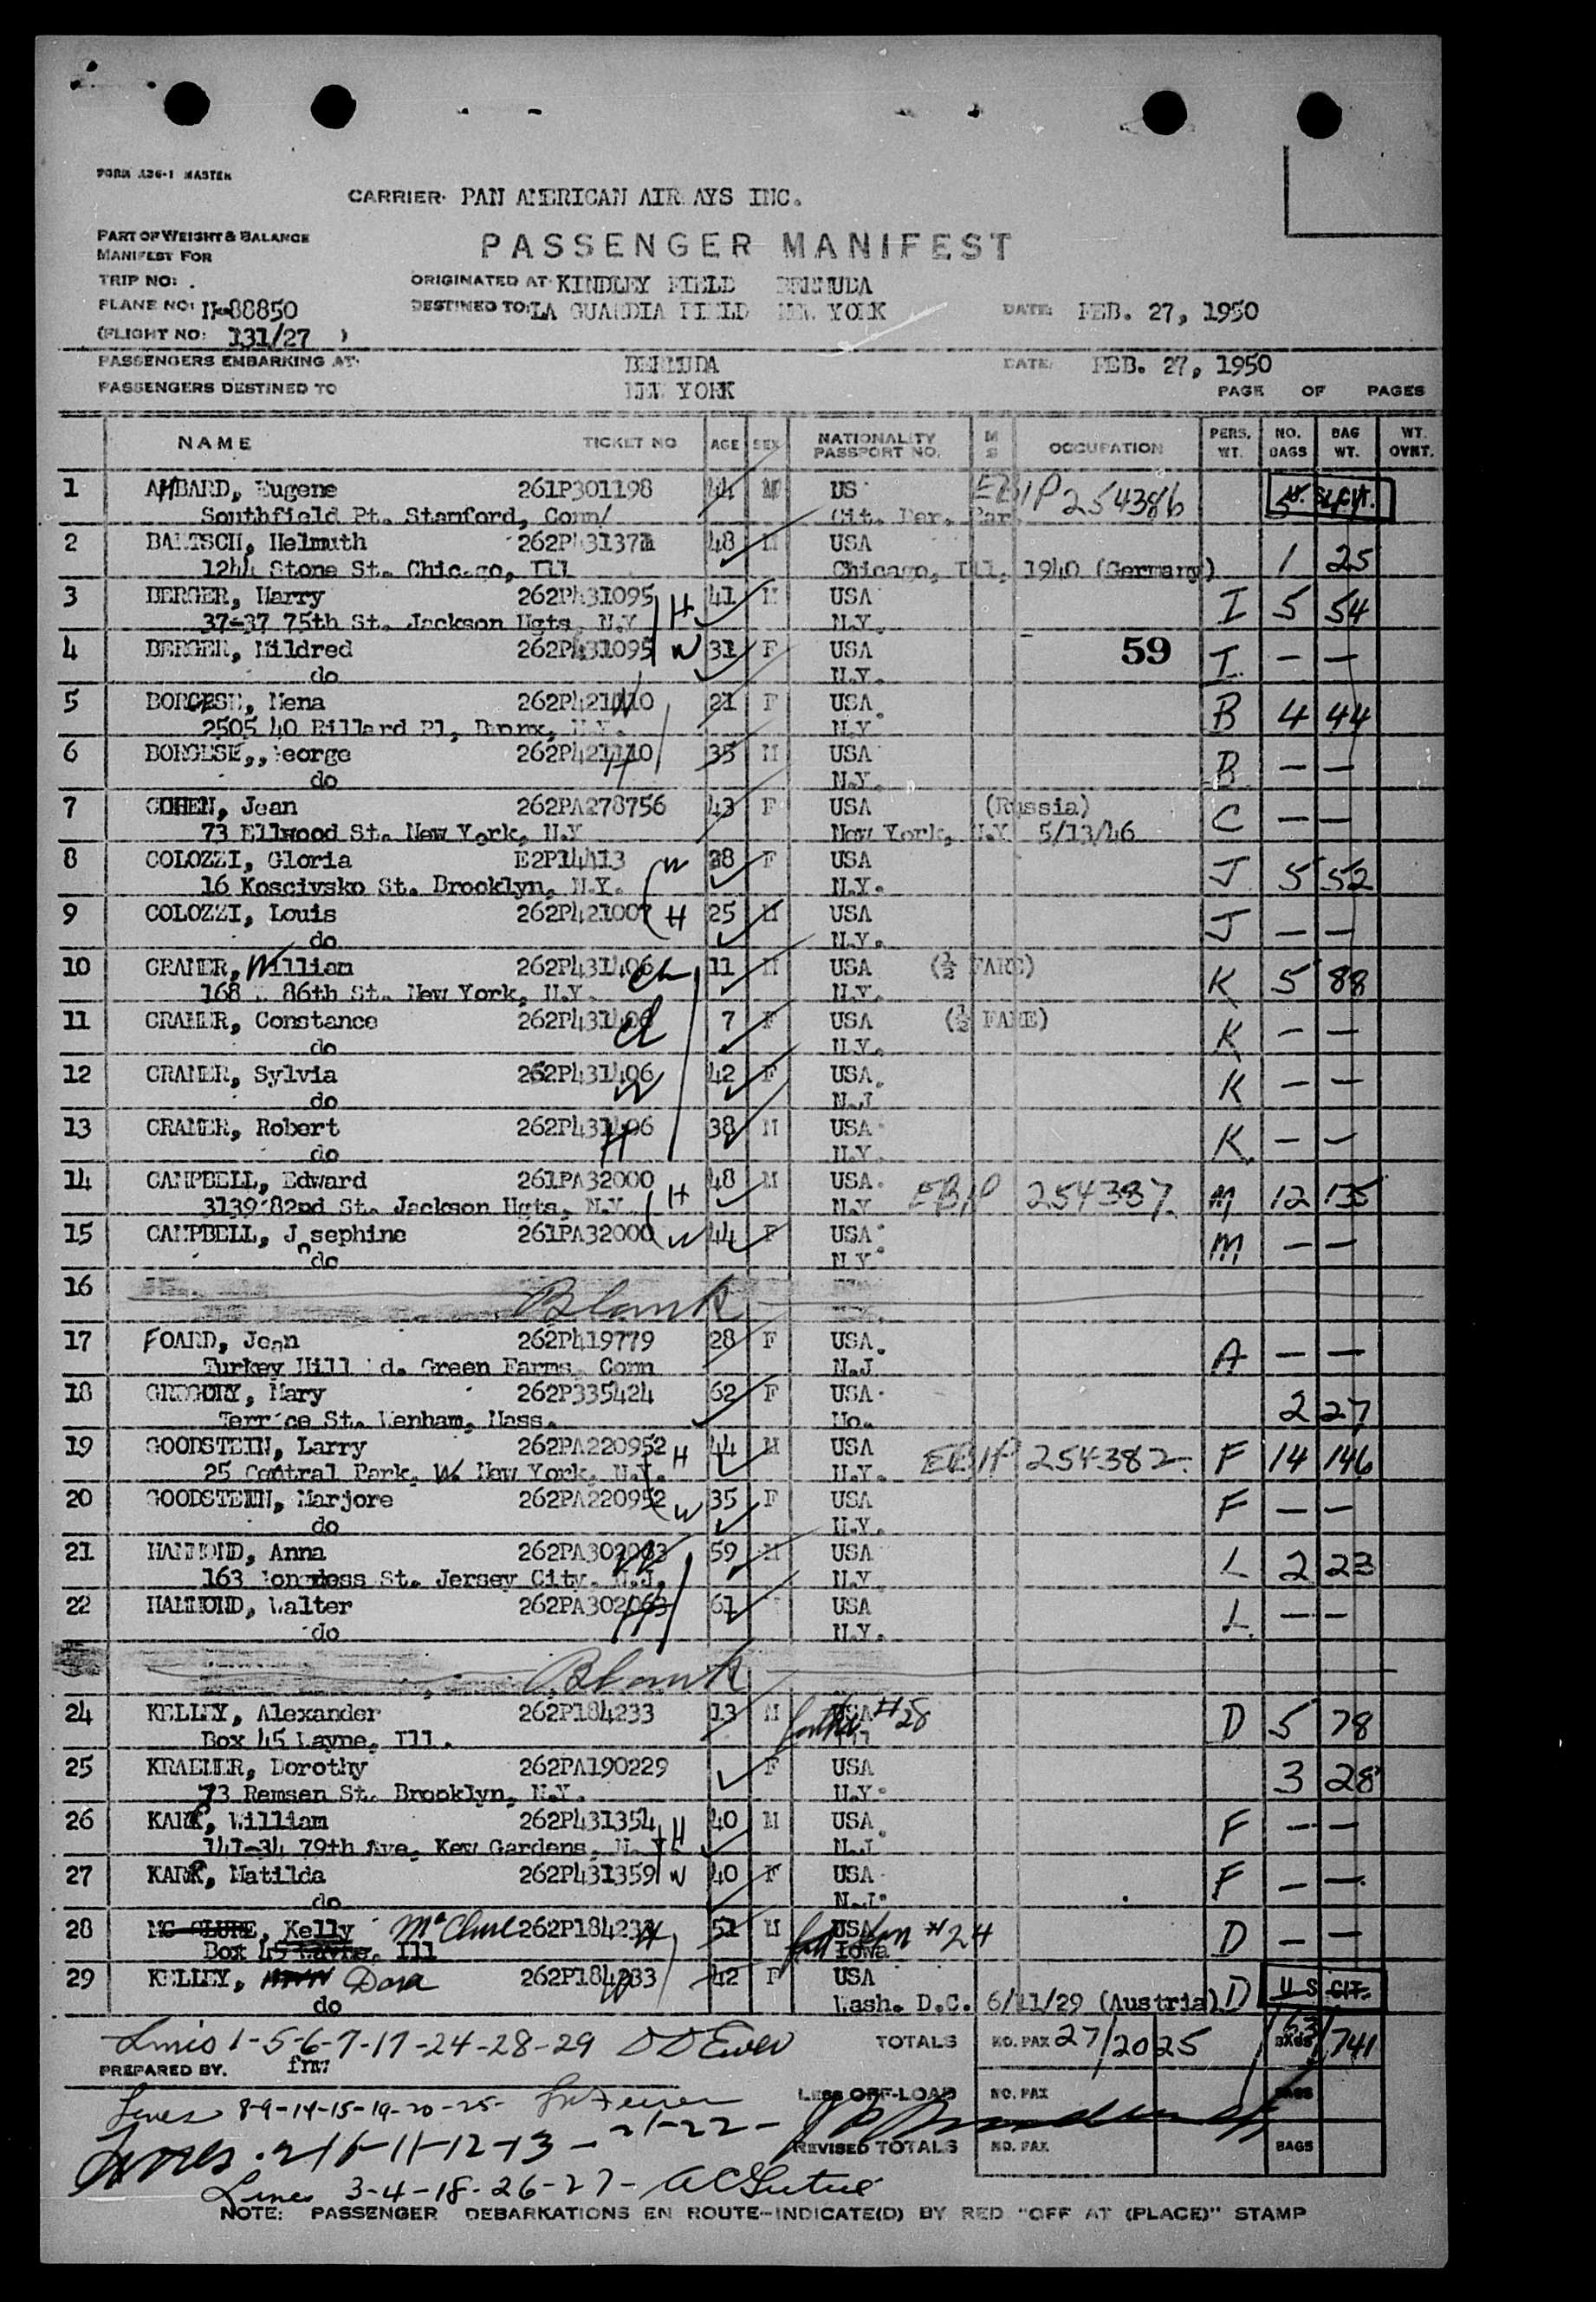 FORM 136-1 MASTER
CARRIER· PAN AMERICAN AIR AYS INC.
PART OF WEIGHT & BALANCE
MANIFEST FOR
PASSENGER MANIFEST
TRIP NO:
ORIGINATED AT· KINDLEY FIELD BERMUDA
PLANE NO: N-88850
DESTINED TO: LA GUARDIA FIELD NEW YORK
DATE: FEB. 27, 1950
(FLIGHT NO: 131/27 )
PASSENGERS EMBARKING AT· BERMUDA DATE: FEB. 27, 1950
PASSENGERS DESTINED TO NEW YORK PAGE OF PAGES
NAME TICKET NO AGE SEX NATIONALITY PASSPORT NO. M S OCCUPATION PERS. WT. NO. BAGS BAG WT. WT. OVNT.
1 AHBARD, Eugene 261P301198 44 M US EBIP 254386 5
Southfield Pt. Stamford, Conn/ Cit. Per. Par.
2 BARTSCH, Helmuth 48 M USA
1244 Stone St. Chicago, Ill Chicago, Ill, 1940 (Germany) 1 25
3 BERGER, Harry 262P431095 H 41 M USA I 5 54
37-37 75th St. Jackson Hgts, N.Y N.Y.
4 BERGER, Mildred 262P431095 W 31 F USA 59 I — —
do N.Y.
5 BORGESE, Nena 262P421110 W 21 F USA B 4 44
2505 40 Pl, Bronx, N.Y. N.Y
6 BORGESE,, George 262P421110 H 35 M USA B — —
do N.Y.
7 COHEN, Jean 262PA278756 43 F USA (Russia) C — —
73 Ellwood St. New York, N.Y New York, N.Y 5/13/46
8 COLOZZI, Gloria W 28 F USA J 5 52
16 Koscivsko St. Brooklyn, N.Y. N.Y.
9 COLOZZI, Louis 262P421007 H 25 M USA J — —
do N.Y.
10 CRAMER, William 262P431406 ch 11 M USA (½ FARE) K 5 88
168 86th St. New York, N.Y. N.Y.
11 CRAMER, Constance 262P431406 ch 7 F USA (½ FARE) K — —
do N.Y.
12 CRAMER, Sylvia 262P431406 W 42 F USA. K — —
do N.J
13 CRAMER, Robert 262P431406 H 38 M USA K — —
do N.Y.
14 CAMPBELL, Edward 261PA32000 H 48 M USA. EBIP 254387. M 12 135
3139 82nd St. Jackson Hgts, N.Y N.Y
15 CAMPBELL, Josephine 261PA32000 W 44 F USA M — —
do N.Y
16 Blank
17 FOARD, Jean 262P419779 28 F USA. A — —
Turkey Hill d. Green Farms, Conn N.J
18 GREGORY, Mary 262P335424 62 F USA 2 27
Terrace St. Wenham, Mass. Mo.
19 GOODSTEIN, Larry 262PA220952 H 44 M USA EBIP 254382. F 14 146
25 Central Park, W. New York, N.Y. N.Y.
20 GOODSTEIN, Marjore 262PA220952 W 35 F USA F — —
do N.Y.
21 HAMMOND, Anna 262PA302063 W 59 M USA L 2 23
163 St. Jersey City, N.J. N.Y
22 HAMMOND, Walter 262PA302063 H 61 USA L — —
do N.Y.
Blank
24 KELLEY, Alexander 262P184233 13 M USA father #28 D 5 78
Box 45 Layne, Ill. Ill
25 KRAEMER, Dorothy 262PA190229 F USA 3 28
73 Remsen St. Brooklyn, N.Y. N.Y.
26 KARP, William 262P431354 H 40 M USA F — —
141-34 79th Ave, Kew Gardens, N.Y. N.J
27 KARP, Matilda 262P431359 W 40 F USA F — —
do N.J.
28 MC CLURE, Kelly McClure 262P184233 H 51 M USA son #24 D — —
Box 45 Layne, Ill Iowa
29 KELLEY, Dora 262P184233 W 42 F USA D U S CIT.
do Wash. D.C. 6/11/29 (Austria)
Lines 1-5-6-7-17-24-28-29 TOTALS NO. PAX 27/20 25 BAGS 63 741
PREPARED BY. frm
Lines 8-9-14-15-19-20-25- LESS OFF-LOAD NO. PAX BAGS
Lines 2-10-11-12-13-21-22- REVISED TOTALS NO. PAX BAGS
Lines 3-4-18-26-27-
NOTE: PASSENGER DEBARKATIONS EN ROUTE—INDICATE(D) BY RED "OFF AT (PLACE)" STAMP